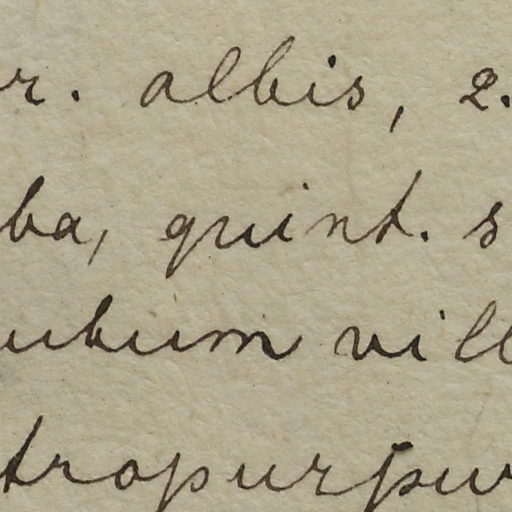 r. albis, 2.
ba, quint. s
ubum vill
tropurpu